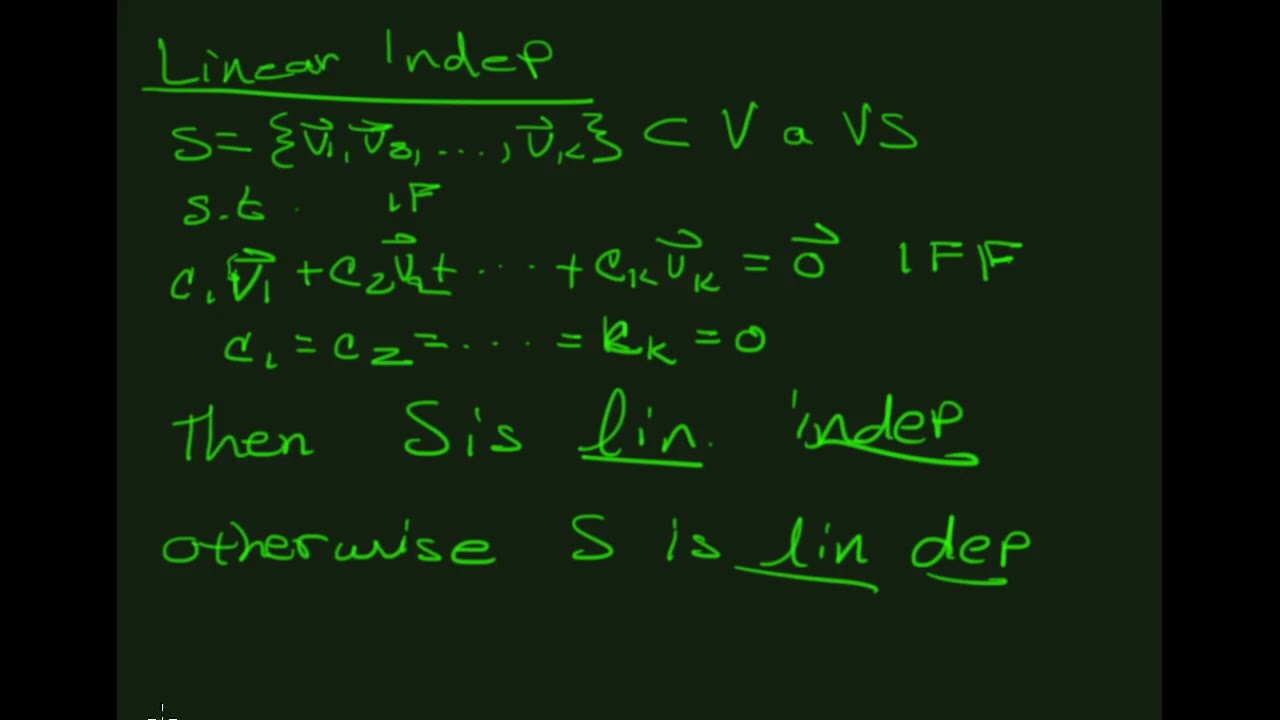 Linear Indep
S = {v⃗₁, v⃗₂, ..., v⃗ₖ} ⊂ V a VS
s.t. IF
c₁v⃗₁ + c₂v⃗₂ + ... + cₖv⃗ₖ = 0⃗ IFF
c₁ = c₂ = ... = cₖ = 0
Then S is lin. indep
otherwise S is lin dep